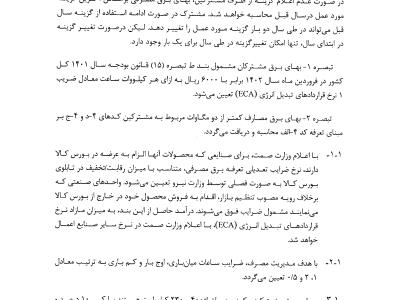 در صورت عدم اعلام گزینه از طرف مشترکین، بهای برق مصرفی براساس آخرین گزینه
مورد عمل درسال قبل محاسبه خواهد شد. مشترک در صورت ادامه استفاده از گزینه سال
قبل می‌تواند در طی سال دو بار گزینه مورد عمل را تغییر دهد. لیکن درصورت تغییر گزینه
در ابتدای سال، تنها امکان تغییرگزینه در طی سال برای یک بار وجود دارد.
تبصره ۱- بهای برق مشترکان مشمول بند ط تبصره (۱۵) قانون بودجه سال ۱۴۰۱ کل
کشور در فروردین ماه سال ۱۴۰۲ برابر با ۶۰۰۰ ریال به ازای هر کیلووات ساعت معادل ضریب
۱ نرخ قراردادهای تبدیل انرژی (ECA) تعیین می‌شود.
تبصره ۲- بهای برق مصارف کمتر از دو مگاوات مربوط به مشترکین کدهای ۴-د و ۴-ج بر
مبنای تعرفه کد ۴-الف محاسبه و دریافت می‌گردد.
۱-۱- با اعلام وزارت صمت، برای صنایعی که محصولات آنها الزام به عرضه در بورس کالا
دارند، نرخ ضرایب تعدیلی تعرفه برق مصرفی، متناسب با میزان رقابت/تخفیف در تابلوی
بورس کالا به صورت فصلی توسط وزارت نیرو تعیین می‌شود. واحدهای صنعتی که
برخلاف رویه مصوب تنظیم بازار، اقدام به فروش محصول خود در خارج از بورس کالا
می‌نمایند مشمول ضرایب فوق می‌شوند. درآمد حاصل از این بند، به میزان مازاد نرخ
قراردادهای تبدیل انرژی (ECA)، با اعلام وزارت صمت در نرخ سایر صنایع اعمال
خواهد شد.
۲-۱- با هدف مدیریت مصرف، ضرایب ساعات میان‌باری، اوج بار و کم باری به ترتیب معادل
۱، ۲ و ۰/۵ تعیین می‌گردد.